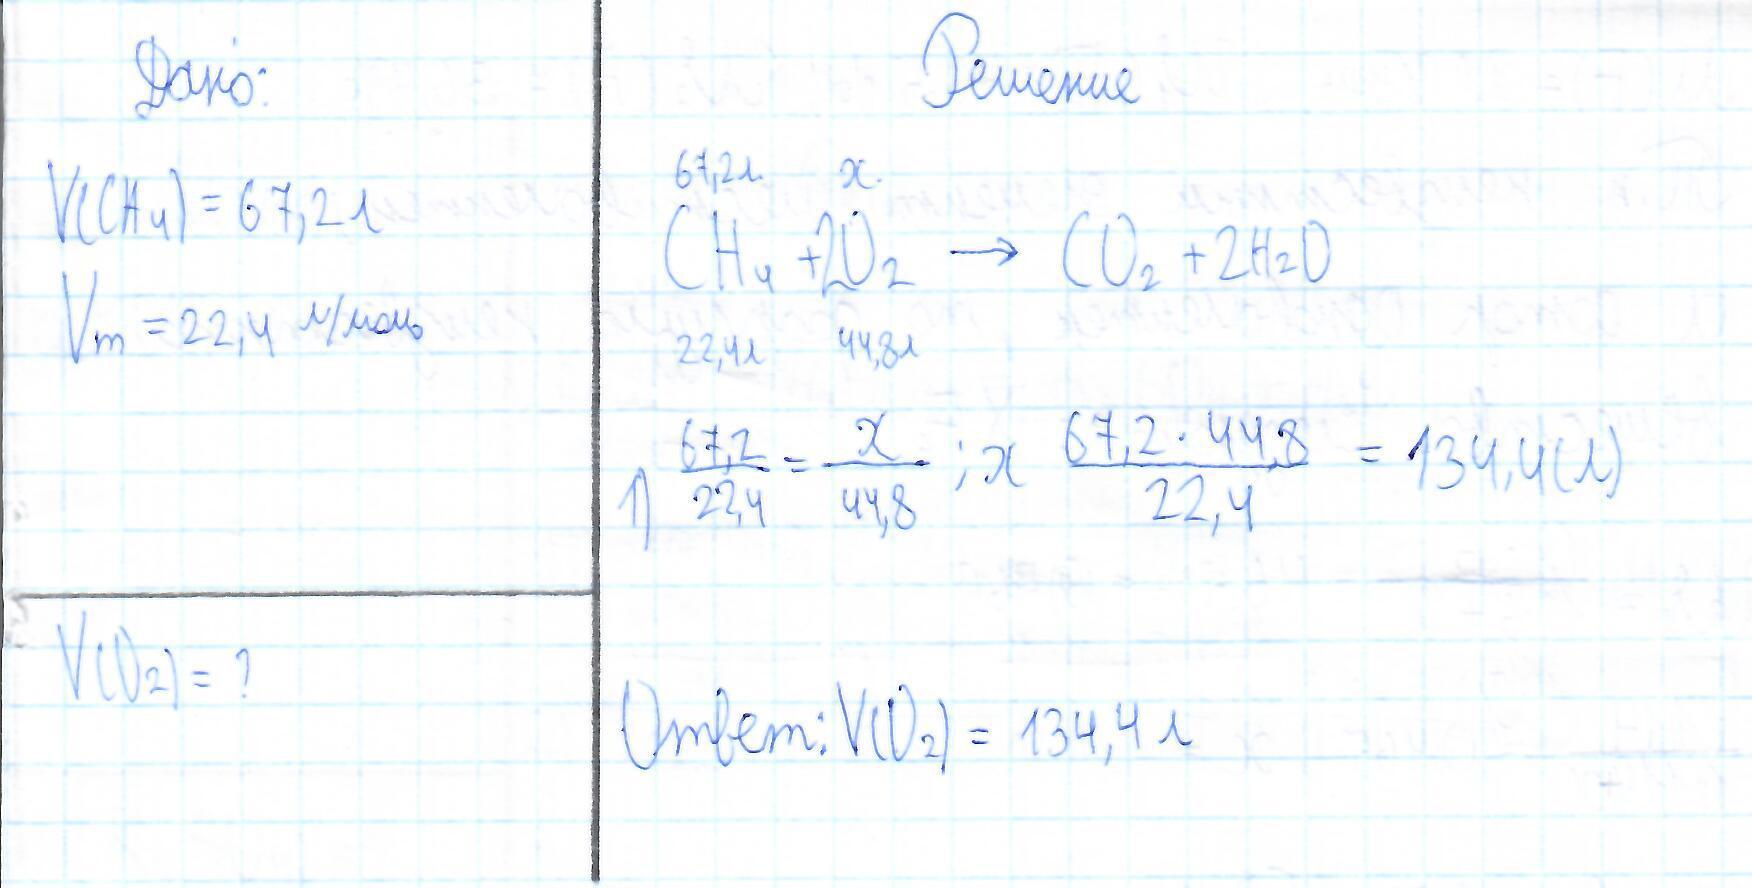 Дано:
V(CH4) = 67,2 л
Vm = 22,4 л/моль
V(O2) = ?
Решение
67,2л x.
CH4 + 2O2 → CO2 + 2H2O
22,4л 44,8л
1) 67,2/22,4 = x/44,8 ; x 67,2 · 44,8/22,4 = 134,4(л)
Ответ: V(O2) = 134,4 л